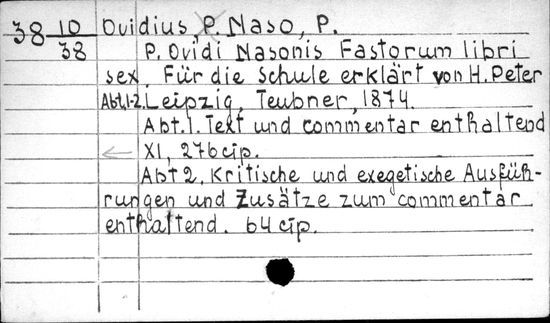 38 10/38 Ovidius, P. Naso, P.
P. Ovidi Nasonis Fastorum libri
sex. Für die Schule erklärt von H. Peter
Abt. 1-2. Leipzig, Teubner, 1874.
Abt. 1. Text und commentar enthaltend
XI, 276 стр.
Abt 2. Kritische und exegetische Ausfüh-
rungen und Zusätze zum commentar
enthaltend. 64 стр.